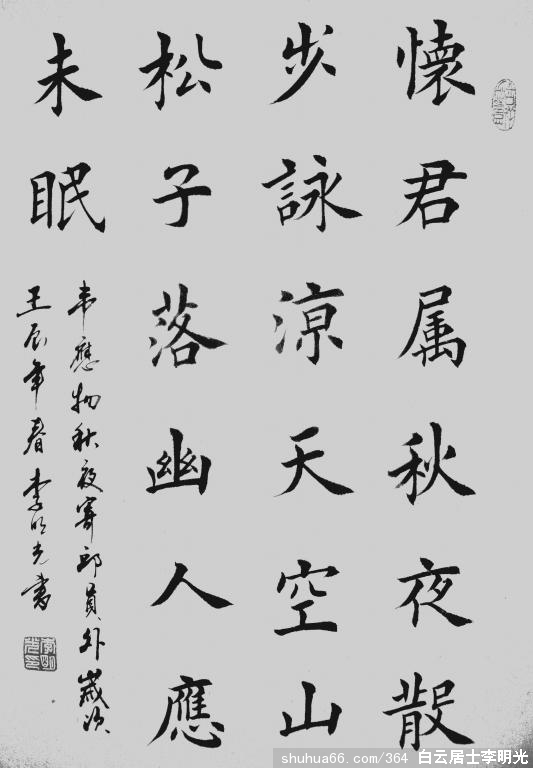 懷君属秋夜散
步詠涼天空山
松子落幽人應
未眠
韦應物秋夜寄邱員外歲次
壬辰年春李明光書
shuhua66.com/364 白云居士李明光